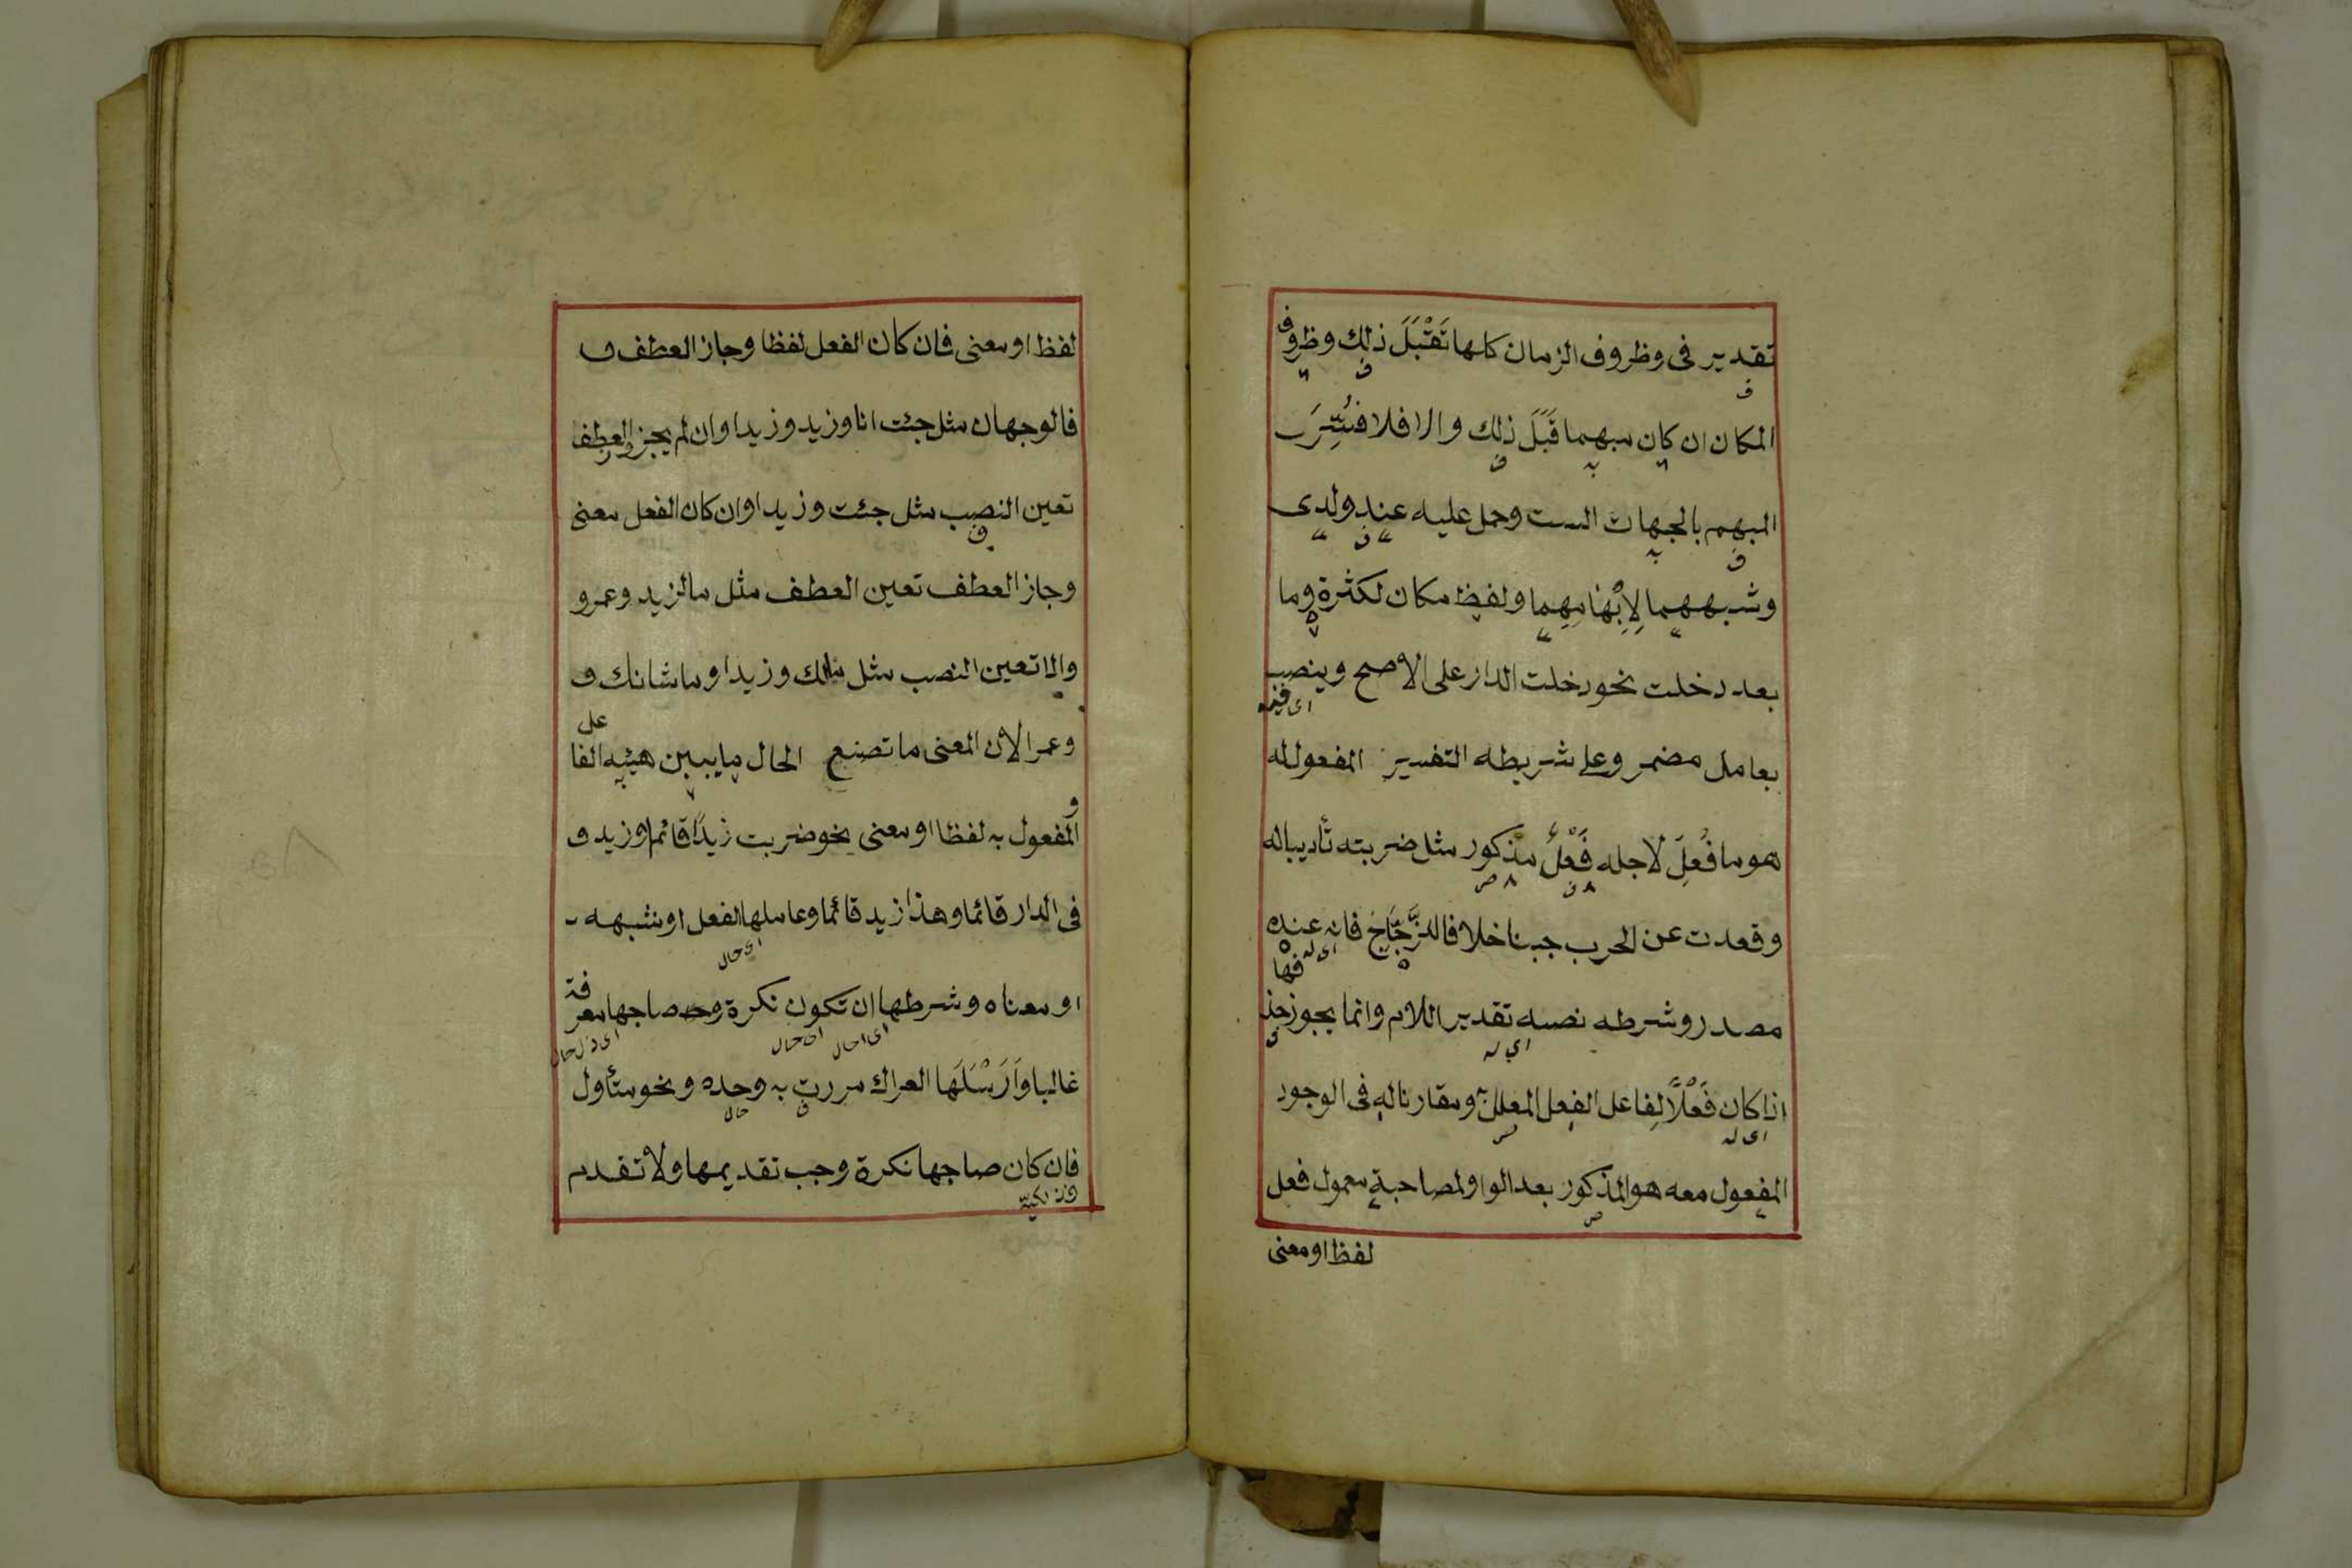 تقدير فى وظروف الزمان كلها تَقْبَلَ ذلك وظروف
المكان ان كان مبهما قَبَلَ ذلك والا فلا فُسِّرَ
المبهم بالجهات الست وحمل عليه عند ولدى
وشبههما لِاِبْهَامِهِما ولفظ مكان لكثرة وما
بعد دخلت نحو دخلت الدار على الاصح وينصب
اى فيه
بعامل مضمر وعلى شريطه التفسير المفعول له
هو ما فُعِلَ لاجله فَعْلٌ مذكور مثل ضربته تأديباله
وقعدت عن الحرب جبنا خلافا للزَّجَّاجْ فانه عنده
مصدر وشرطه نصبه تقدير اللام وانما يجوز حذفها
اى له
اذا كان فَعْلًا لِفاعل الفعل المعلل به ومقارناله فى الوجود
اى له
المفعول معه هو المذكور بعد الواو لمصاحبةٍ معمول فعل
لفظا او معنى
لفظا او معنى فان كان الفعل لفظا وجاز العطف ف
فالوجهان مثل جئت انا وزيد وزيدا وان لم يجز العطف
تعين النصب مثل جئت وزيدا وان كان الفعل معنى
وجاز العطف تعين العطف مثل مالزيد وعمرو
والا تعين النصب مثل مالك وزيدا وما شانك و
وعمرا لان المعنى ما تصنع الحال ما يبين هيئه الفاعل
و المفعول به لفظا او معنى نحو ضربت زيدًا قائما وزيد ف
فى الدار قائما وهذا زيد قائما وعاملها الفعل او شبهه
اى حال
او معناه وشرطها ان تكون نكرة وصاحبها معرفة
اى حال
غالبا وَاَرْسَلَهَا العراك مررت به وحده ونحو متأول
حال
فان كان صاحبها نكرة وجب تقديمها ولا تقدم